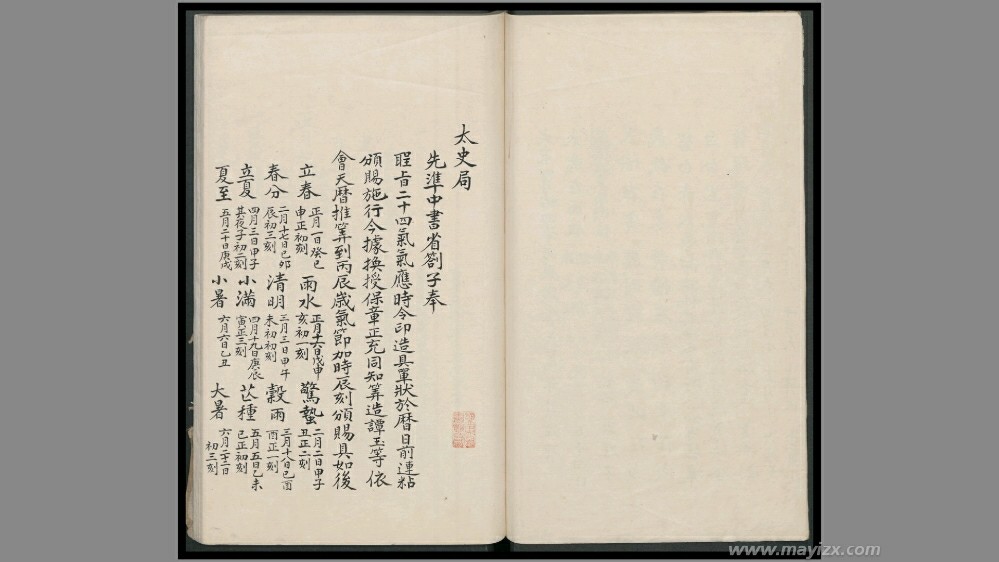 太史局
先準中書省劄子奉
聖旨二十四氣氣應時令印造具單狀於曆日前連粘
頒賜施行今據換授保章正充同知筭造譚玉等依
會天曆推筭到丙辰歲氣節加時辰刻頒賜具如後
立春 正月一日癸巳 申正初刻 雨水 正月十六日戊申 亥初一刻 驚蟄 二月二日甲子 丑正二刻
春分 二月十七日己卯 辰初三刻 清明 三月三日甲午 未初初刻 穀雨 三月十八日己酉 酉正一刻
立夏 四月三日甲子 其夜子初二刻 小滿 四月十九日庚辰 寅正三刻 芒種 五月五日乙未 巳正初刻
夏至 五月二十日庚戌 小暑 六月六日乙丑 大暑 六月二十二日 初三刻
www.mayizx.com